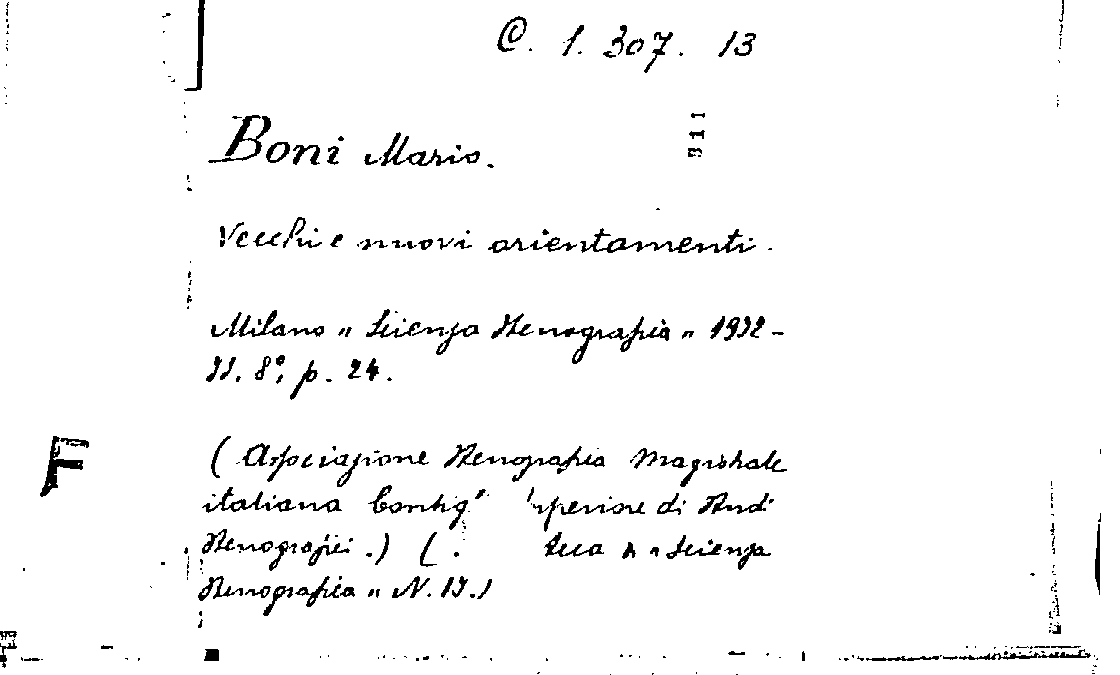 C. 1. 307. 13
311
Boni Mario.
Vecchi e nuovi orientamenti.
Milano " Scienza Stenografica " 1932-
II. 8°, p. 24.
F
( Associazione Stenografia Magistrale
italiana di Studi
Stenografici .) ( " Scienza
Stenografica " N. 17.)